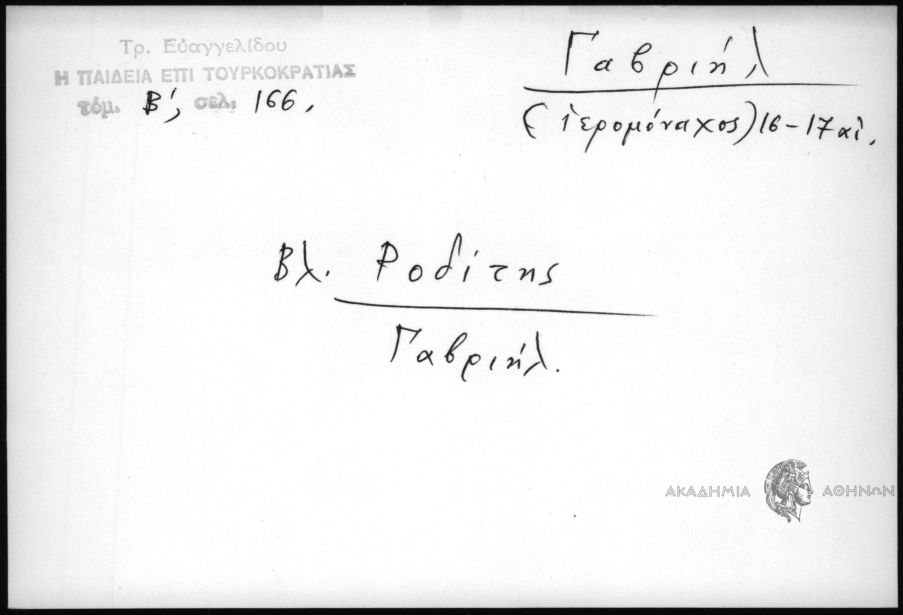 Τρ. Εὐαγγελίδου
Η ΠΑΙΔΕΙΑ ΕΠΙ ΤΟΥΡΚΟΚΡΑΤΙΑΣ
τόμ. Β', σελ. 166.
Γαβριήλ
(ἱερομόναχος) 16-17 αἰ.
Βλ. Ροδίτης
Γαβριήλ.
ΑΚΑΔΗΜΙΑ ΑΘΗΝΩΝ